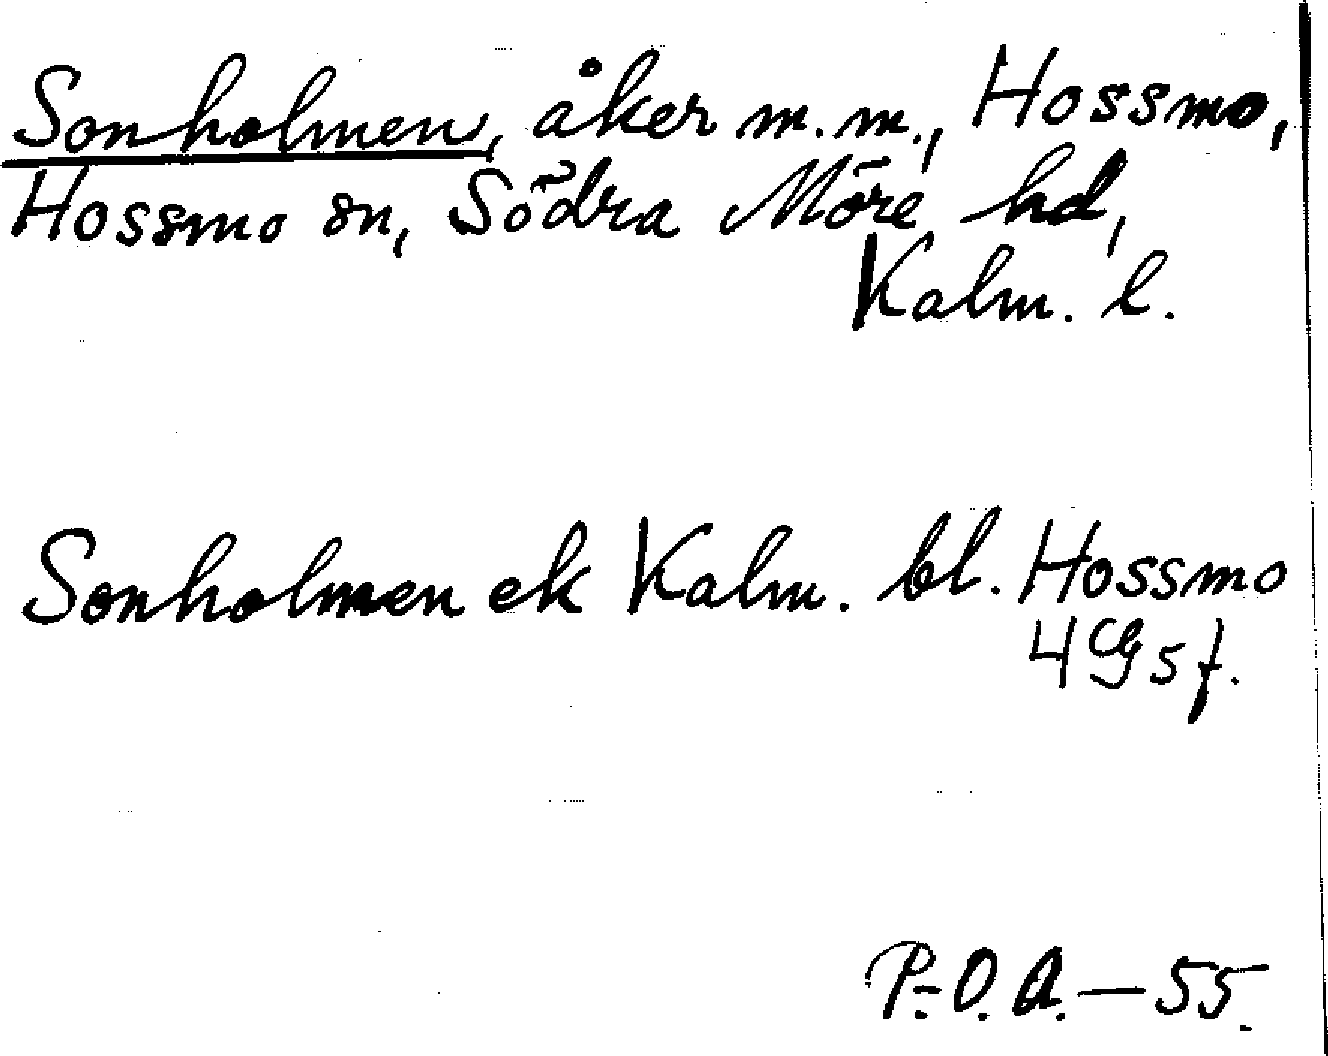 Sonholmen, åker m.m., Hossmo,
Hossmo sn, Södra Möre hd,
Kalm. l.
Sonholmen ek Kalm. bl. Hossmo
4 G 5 f.
P.-O. A. — 55.